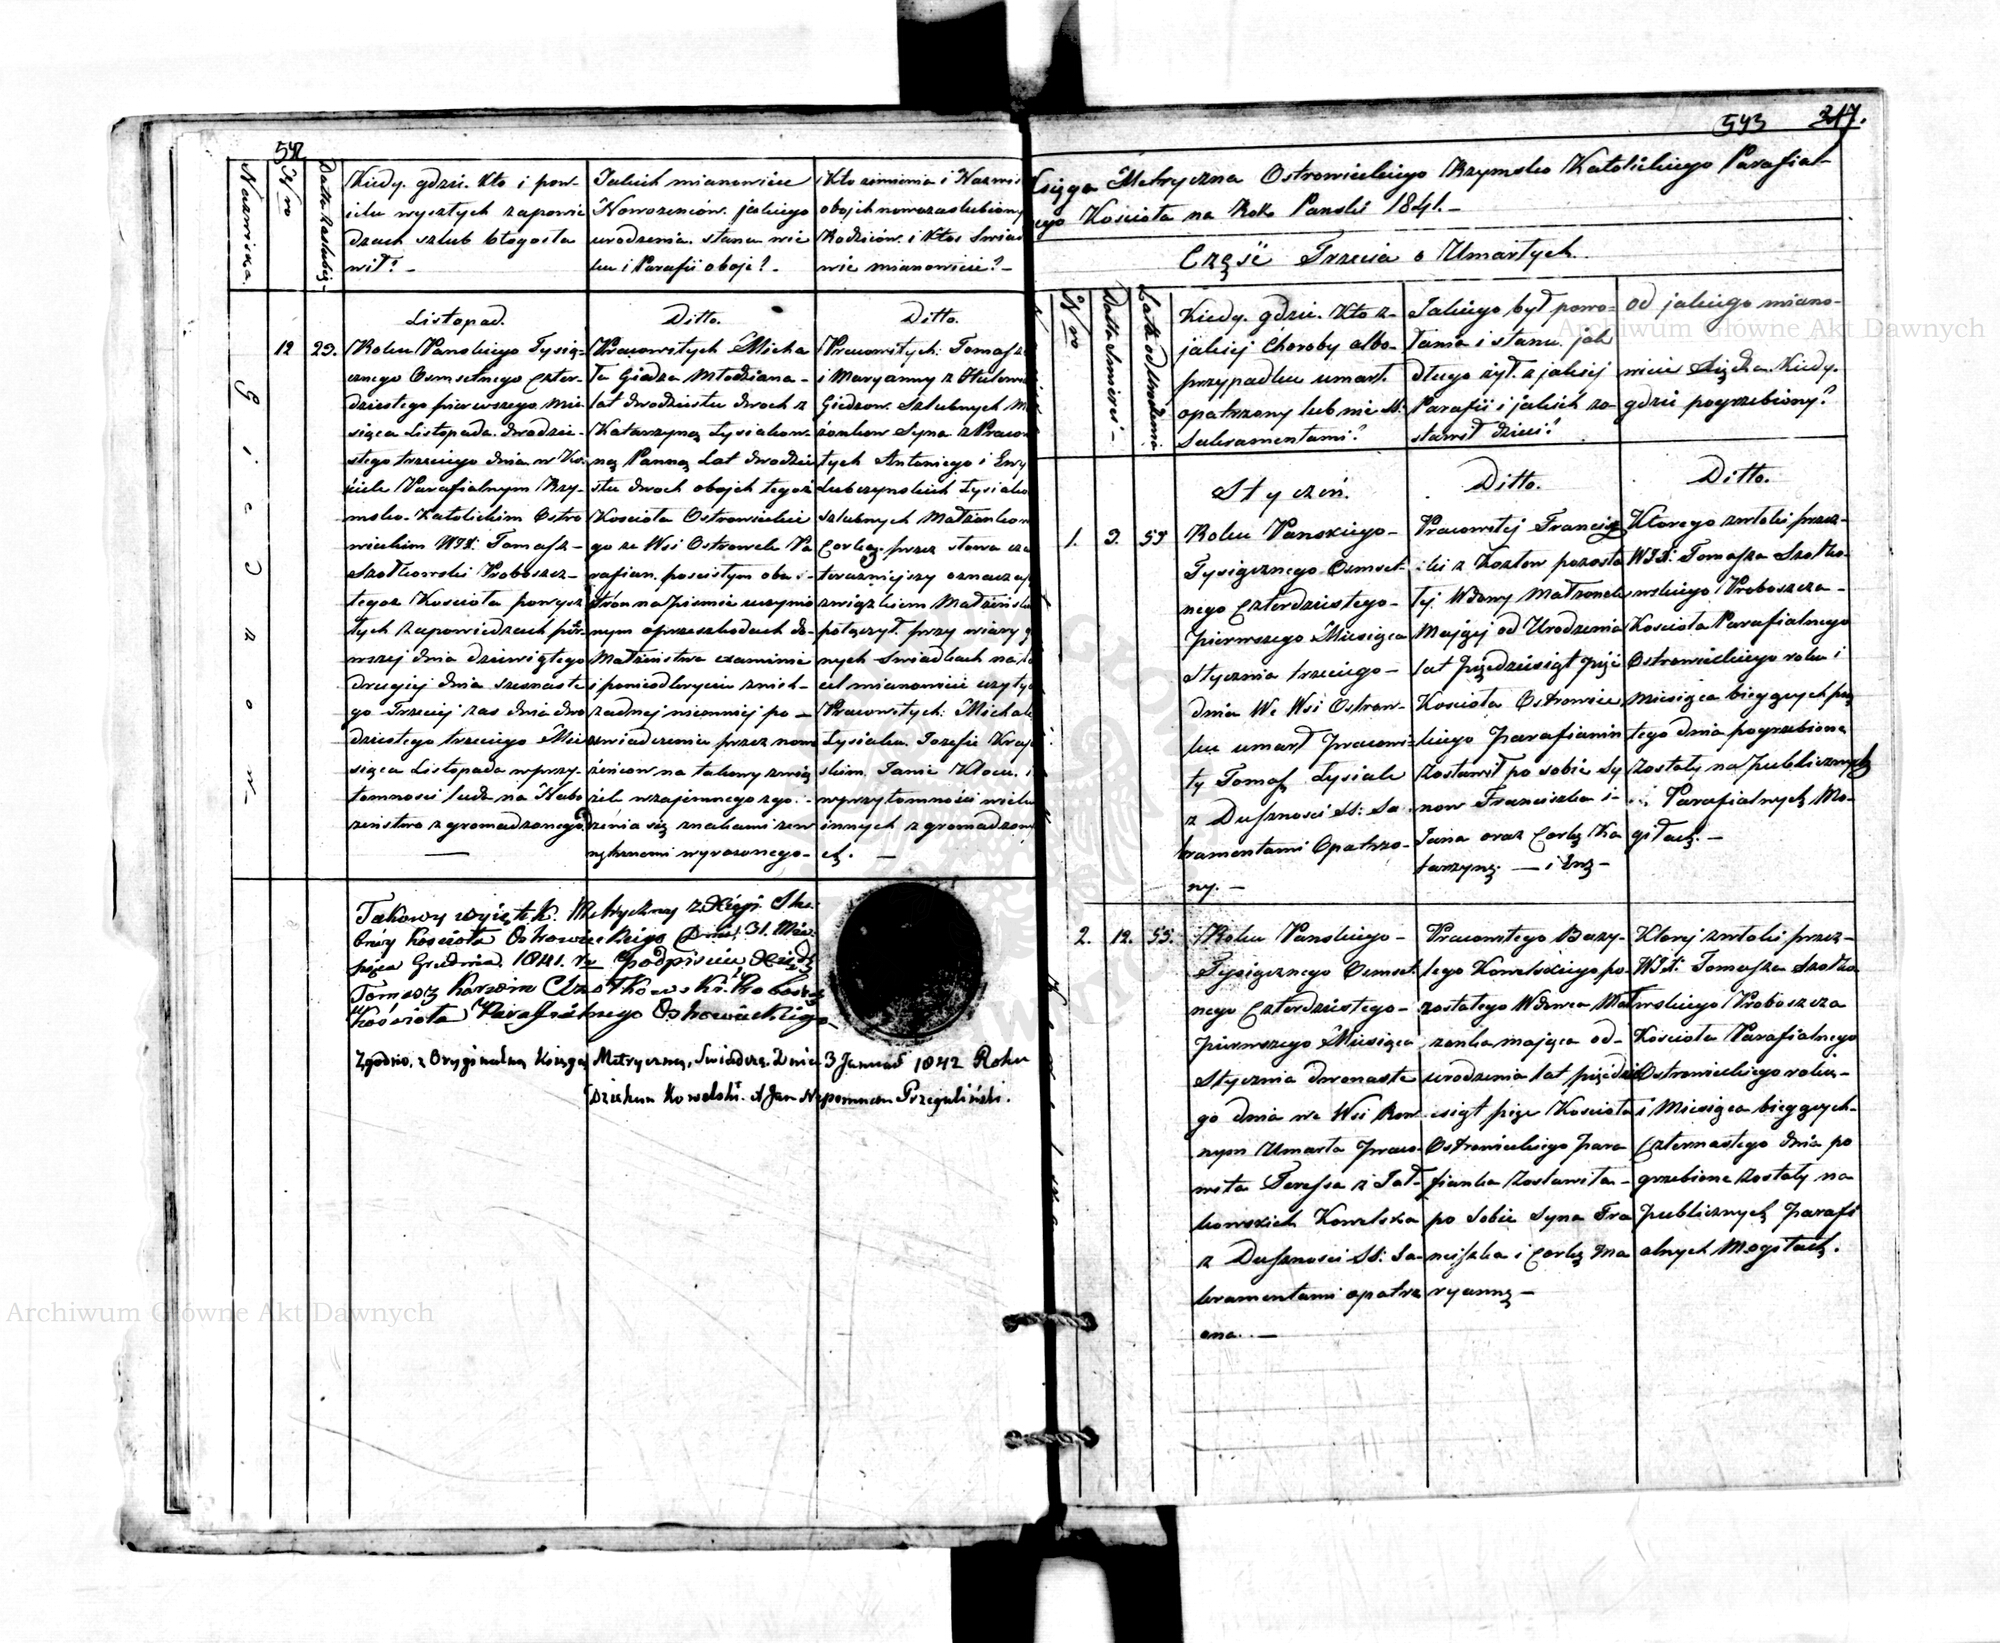 542
Nazwiska.
Nro
Datta Zaślubie-
Kiedy. gdzie. Kto i pow-
ielu wyszłych zapowie
dziach szlub błogosła
wił? -
Jakich mianowicie
Nowożeńców. jakiego
urodzenia. stanu wie
ku i Parafii oboje? -
Kto z imienia i Nazwis
obojch nowozaslubiony
Rodziców. i Ktoś Swiad
wie mianowicie? -
Listopad.
Ditto.
Ditto.
Giedzow-
12
23.
Roku Pańskiego Tysią-
cznego Osmsetnego Czter-
dziestego pierwszego Mie-
siąca Listopada dwodzie-
stego trzeciego dnia w Ko-
ściele Parafialnym Rzy-
msko-Katolickim Ostro
wieckim WJX: Tomasz-
Szołkowski Proboszcz-
tegoż Kościoła powysz
łych zapowiedziach pier-
wszej dnia dziewiątego
drugiej dnia szesnaste
go Trzeciej zaś dnia dwo
dziestego trzeciego Mie
siąca Listopada wprzy-
tomności ludu na Nabo
żeństwo zgromadzonego
Pracowitych Micha
ła Giedza Młodziana-
lat dwodziestu dwoch z
Katarzyną Lysiakow-
ną Panną Lat dwodzie
stu dwoch obojch tegoż
Kościoła Ostrowieckie
go ze Wsi Ostrowek Pa
rafian. pościsłym obu-
stron na piśmie uczynio
nym oprzeszkodach do-
Małżeństwa examinie
i ponieodkryciu znich-
żadnej niemniej po-
zwiadczeniu przez nowo
żeńcow na takowy związ
ek wzajemnego ze-
zwolenia się znakami zew
nętrznemi wyrażonego-
Pracowitych: Tomasza
i Maryanny z
Giedzow. Szlubnych M
żonkow Syna z Pracow
tych Antoniego i Ewy
Lubczynskich Lysiako
szlubnych Małżonkow
Corkę przez słowa cza
teraznieyszy oznaczaj
związkiem Małżeńsk
połączył. przy wiary g
nych Swiadkach na to
cel mianowicie użyty
Pracowitych: Michale
Lysiaku. Jozefie
skim. Janie Kłocu. i
wprzytomności wielu
innych zgromadzon
ch. -
Takowy wyiątek Metryczny z Xięgi
Kościoła Ostrowieckiego Dnia 31. Mie-
siąca Grudnia 1841. Ru Podpisuie Xiądz
Tomasz Szołkowski. Proboszcz
Kościoła Parafialnego Ostrowieckiego.
Zgodno. z Oryginalną Xsięgą Metryczną, Swiadczę. Dnia 3 Januar 1842 Roku
Dziekan Kowalski. X Jan Nepomucen Przegaliński.
543 317.
Księga Metryczna Ostrowieckiego Rzymsko Katolickiego Parafial-
nego Kościoła na Rok Pański 1841. -
Część Trzecia o Umarłych.
Nro
Datta Smierci-
Latta od Urodzenia.
Kiedy. gdzie. Kto z-
jakiej Choroby albo-
przypadku umarł.
opatrzony lub nie SS:
Sakramentami?
Jakiego był powo-
łania i stanu. jak
długo żył. z jakiej
Parafii i jakich zo-
stawił dzieci?
Od jakiego miano-
wicie Xiędza. Kiedy.
gdzie pogrzebiony?
Styczeń.
Ditto.
Ditto.
1.
3.
55
Roku Pańskiego-
Tysiącznego Osmset-
nego Czterdziestego-
pierwszego Miesiąca
Stycznia trzeciego-
dnia We Wsi Ostrow-
ku umarł pracowi-
ty Tomasz Lysiak
z Duszności SS: Sa-
kramentami Opatrzo-
ny. -
Pracowitej Francisz
ki z Kozłow pozosta
łej Wdowy Małżonek
Mający od Urodzenia
lat pięćdziesiąt pięć
Kościoła Ostrowiec
kiego Parafianin
Zostawił po sobie Sy
now Franciszka i-
Jana oraz Corkę Ka
tarzynę - i Ewę-
Ktorego zwłoki przez-
WJX: Tomasza Szołko-
wskiego Proboszcza-
Kościoła Parafialnego
Ostrowieckiego roku i
Miesiąca bieżących pią
tego dnia pogrzebione
Zostały na publicznych
Parafialnych Mo-
giłach. -
2.
12.
55.
Roku Pańskiego-
Tysiącznego Osmset-
nego Czterdziestego-
pierwszego Miesiąca
Stycznia dwonaste
go dnia we Wsi Row
nym Umarła praco-
wita Teressa z Jał-
kowskich Kowalska
z Duszności SS: Sa-
kramentami opatrz
ona. -
Pracowitego Bazy-
lego Kowalskiego po
zostałego Wdowca Mał
żonka mająca od-
urodzenia lat pięćdzie
siąt pięć Kościoła
Ostrowieckiego para
fianka Zostawiła-
po sobie Syna Fra
nciszka i Corkę Ma
ryannę -
Ktorej zwłoki przez-
WJX: Tomasza Szołko
wskiego Proboszcza
Kościoła Parafialnego
Ostrowieckiego roku-
i Miesiąca bieżących-
Czternastego dnia po
grzebione zostały na
publicznych Parafi
alnych Mogiłach.
Archiwum Główne Akt Dawnych
Archiwum Główne Akt Dawnych